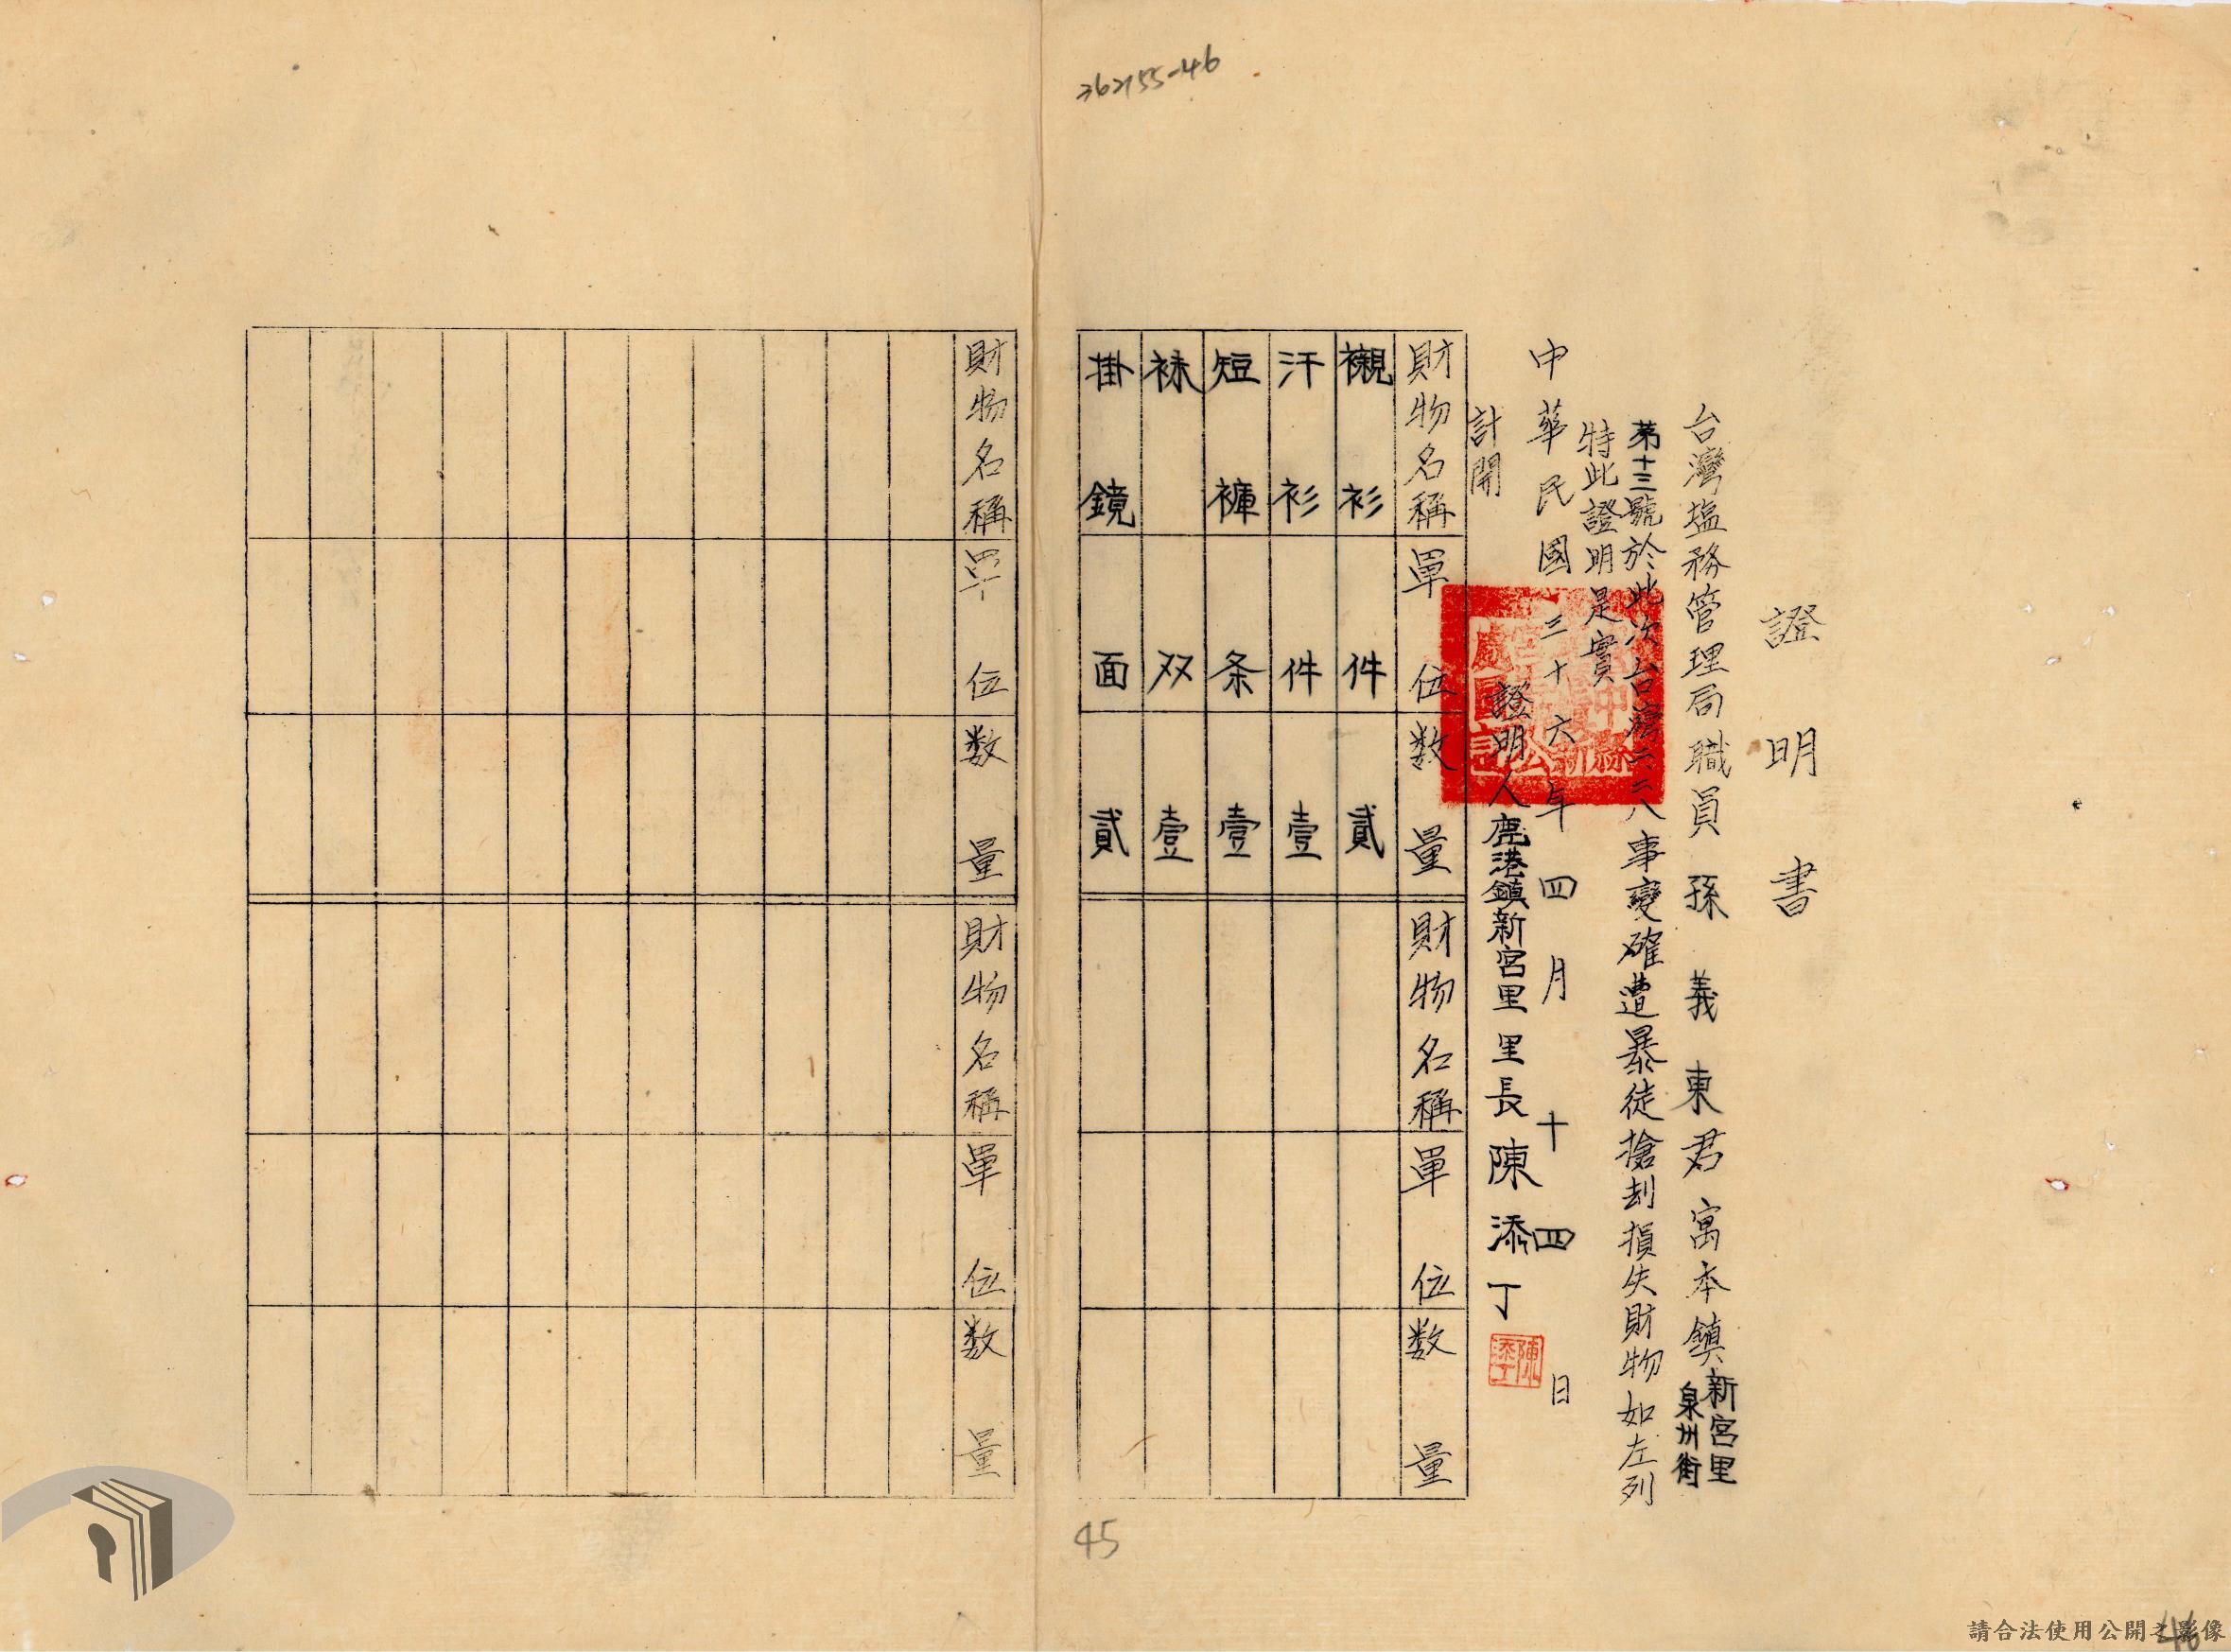 362155-46
證明書
台灣塩務管理局職員孫義東君寓本鎮新宮里
泉州街
第十三號於此次台灣二二八事變確遭暴徒搶刦損失財物如左列
特此證明是實
中華民國三十六年四月十四日
證明人鹿港鎮新宮里里長陳添丁
陳添丁
計開
財物名稱 單位 数量 財物名稱 單位 数量
襯衫 件 貳
汗衫 件 壹
短褲 条 壹
袜 双 壹
掛鏡 面 貳
45
財物名稱 單位 数量 財物名稱 單位 数量
46
請合法使用公開之影像